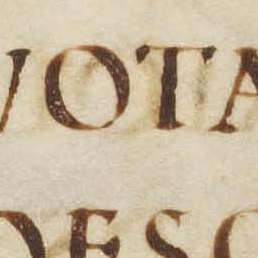 VOTA
DESC